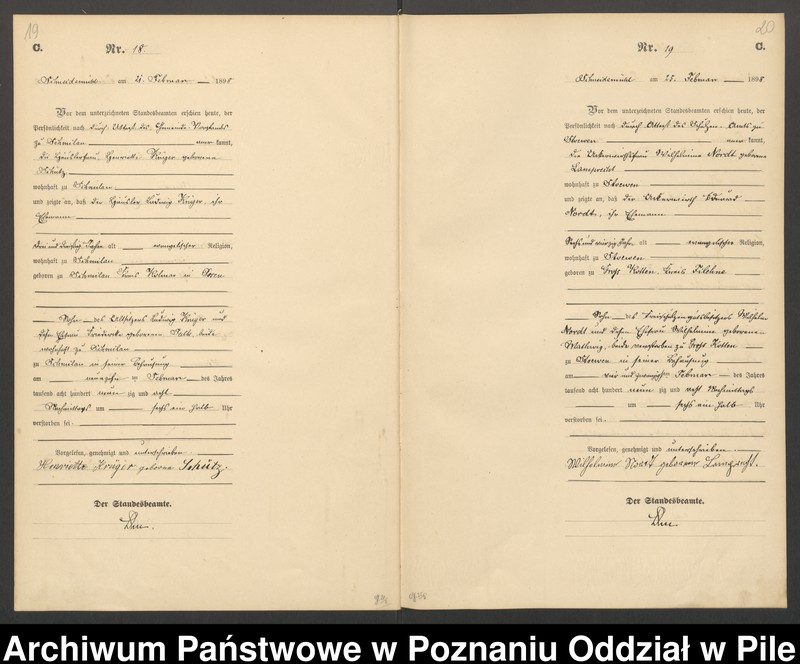 19
C.
Nr. 18.
Schneidemühl am 21. Februar 1898
Vor dem unterzeichneten Standesbeamten erschien heute, der
Persönlichkeit nach durch Attest des Gemeinde Vorstands
zu kannt,
die Häuslerfrau, Henriette Krüger geborene
Schütz
wohnhaft zu
und zeigte an, daß der Häusler Ludwig Krüger, ihr
Ehemann
drei und dreißig Jahre alt evangelischer Religion,
wohnhaft zu
geboren zu Kreis Kolmar in Posen
Sohn des Altsitzers Ludwig Krüger und
dessen Ehefrau Friederike geborenen beide
wohnhaft zu
zu in seiner Behausung
am neunzehnten Februar des Jahres
tausend acht hundert neunzig und acht
Nachmittags um sechs ein halb Uhr
verstorben sei.
Vorgelesen, genehmigt und unterschrieben
Henriette Krüger geborene Schütz.
Der Standesbeamte.
20
C.
Nr. 19
Schneidemühl am 25. Februar 1898
Vor dem unterzeichneten Standesbeamten erschien heute, der
Persönlichkeit nach durch Attest des Schulzen-Amts zu
Stoewen kannt,
die Ackerwirthsfrau Wilhelmine Nordt geborene
wohnhaft zu Stoewen
und zeigte an, daß der Ackerwirth Eduard
Nordt, ihr Ehemann
sechs und vierzig Jahre alt evangelischer Religion,
wohnhaft zu Stoewen
geboren zu Groß Kotten, Kreis Filehne
Sohn des Freischulzengutsbesitzers Wilhelm
Nordt und dessen Ehefrau Wilhelmine geborenen
beide verstorben zu Groß Kotten
zu Stoewen in seiner Behausung
am vier und zwanzigsten Februar des Jahres
tausend acht hundert neunzig und acht Nachmittags
um sechs ein halb Uhr
verstorben sei.
Vorgelesen, genehmigt und unterschrieben
Wilhelmine geborene
Der Standesbeamte.
Archiwum Państwowe w Poznaniu Oddział w Pile